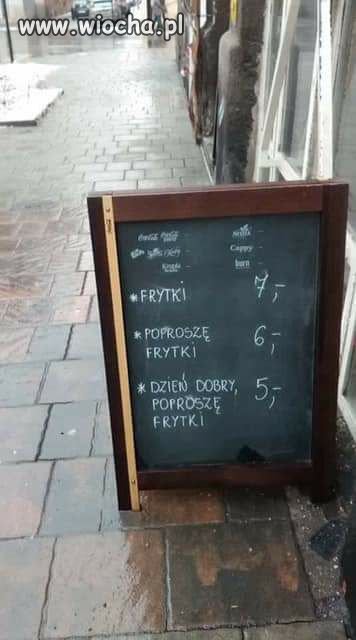 www.wiocha.pl
Coca-Cola Coca-Cola
Nestea
Cappy
Kinley
burn
*FRYTKI 7,-
*POPROSZĘ 6,-
FRYTKI
*DZIEŃ DOBRY, 5,-
POPROSZĘ
FRYTKI